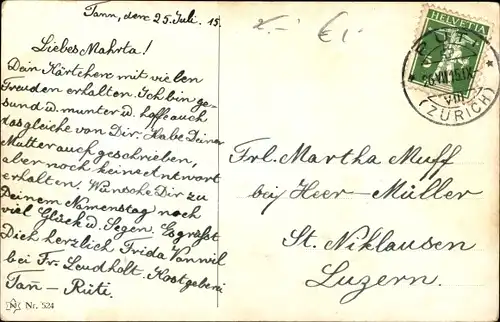 Tann, den 25. Juli. 15.
Liebes Mahrta!
Dein Kärtchen mit vielen
Freuden erhalten. Ich bin ge-
sund u. munter u. hoffe auch
dasgleiche von Dir. Habe Deiner
Mutter auch geschrieben,
aber noch keine Antwort
erhalten. Wünsche Dir zu
Deinem Namenstag noch
viel Glück u. Segen. Es grüßt
Dich herzlich Frida Vonwil
bei Fr. Leudholt. Kostgeberei
Tañ - Rüti.
Nr. 524
HELVETIA
RÜTI
26.VII.15.IX
VIII
(ZÜRICH)
Frl. Martha Muff
bei Heer-Müller
St. Niklausen
Luzern.